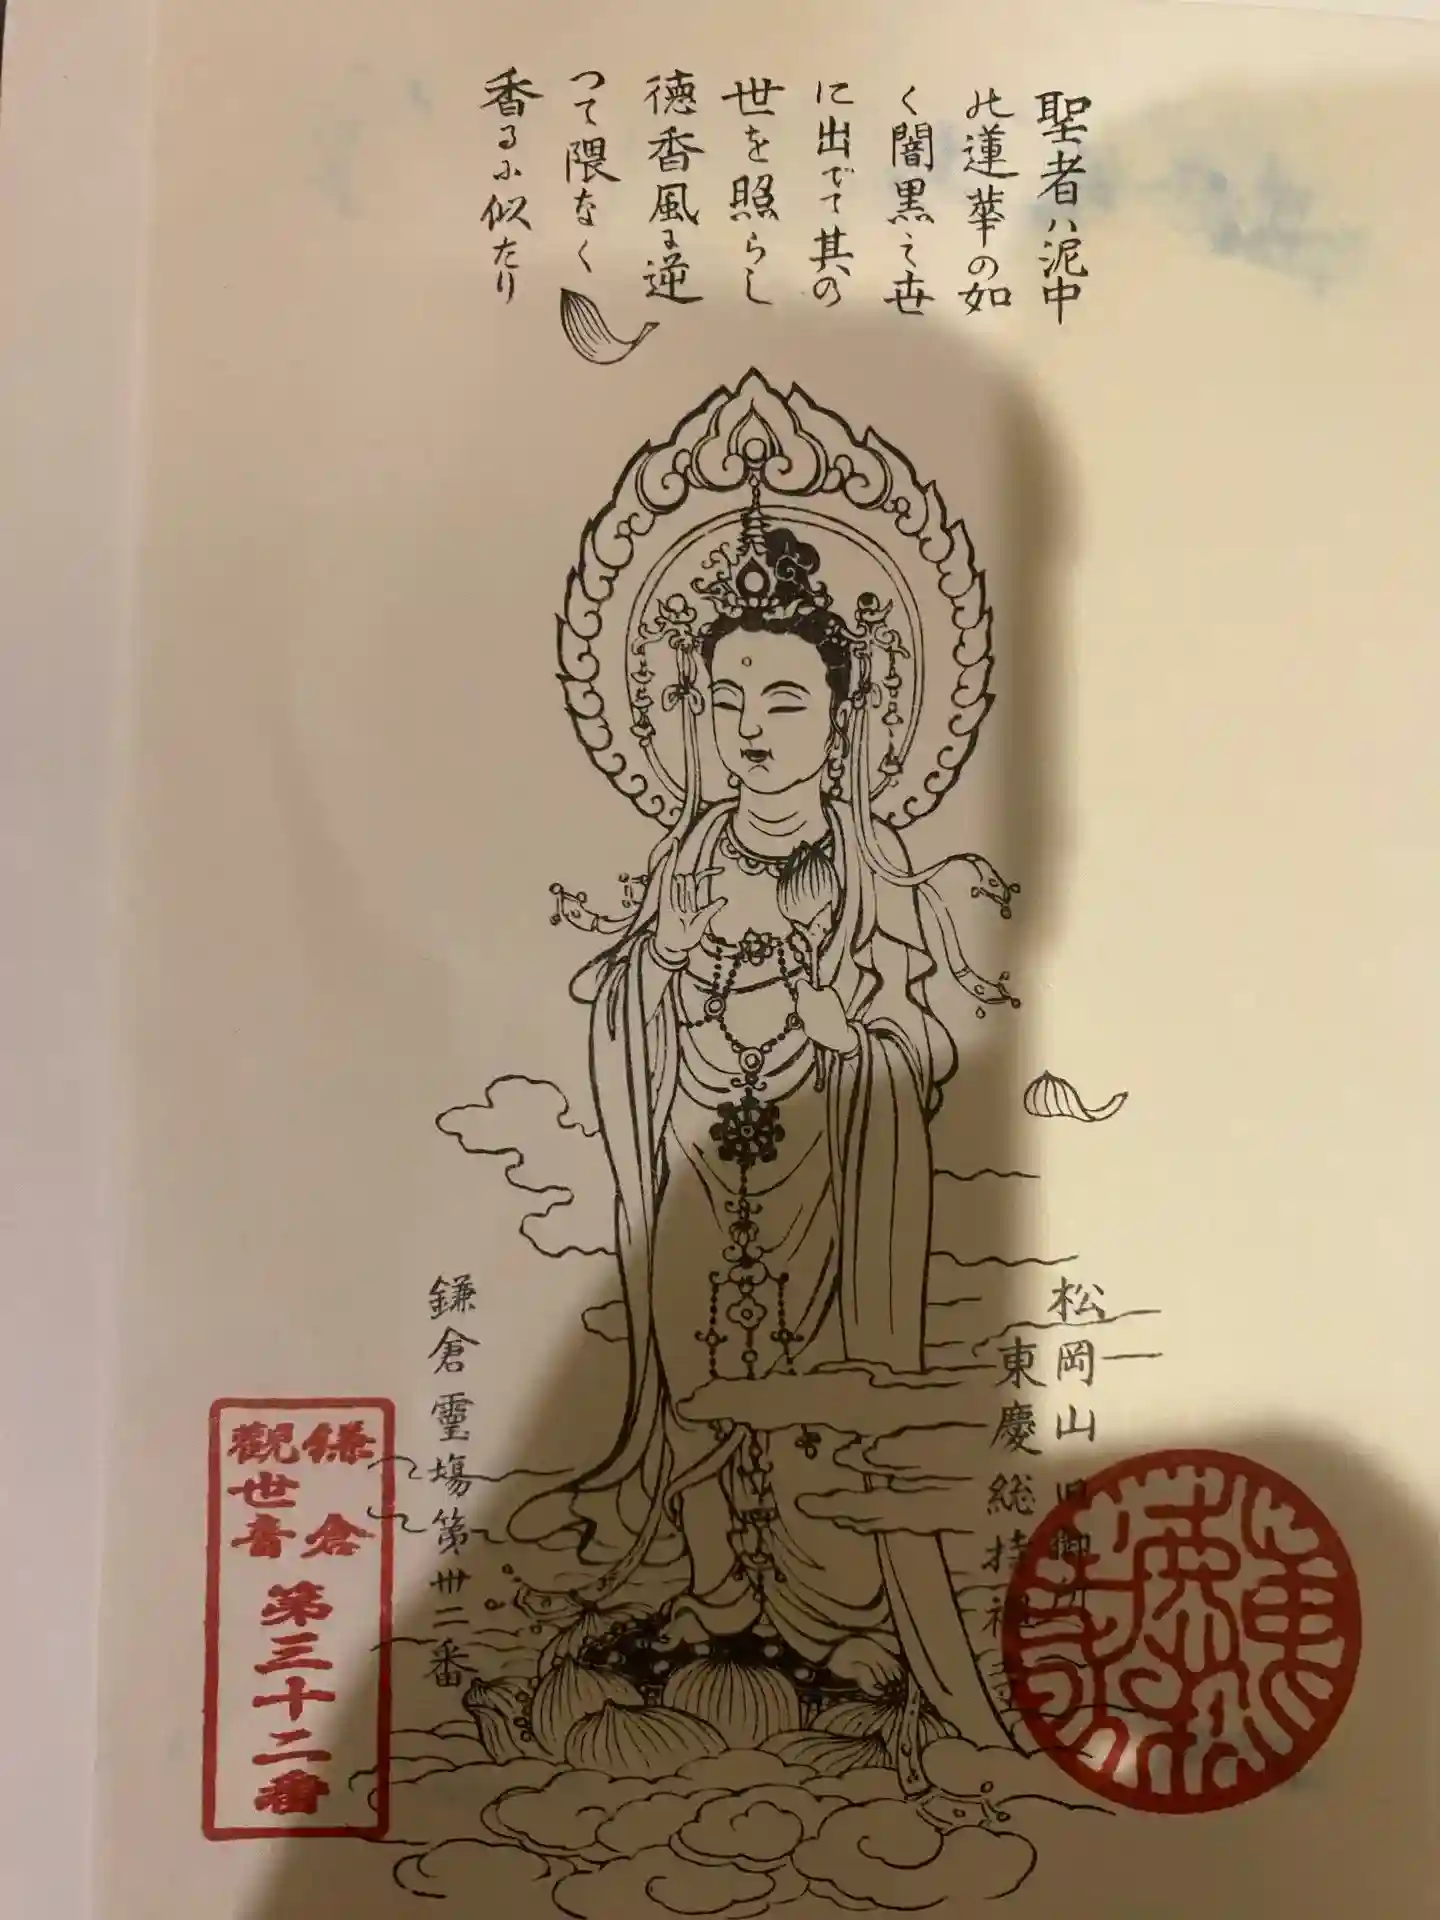 聖者ハ泥中
の蓮華の如
く闇黒之世
に出でて其の
世を照らし
徳香風に逆
つて隈なく
香るに似たり
松岡山
東慶総持禅寺
鎌倉霊場第卅二番
鎌倉
観世音
第三十二番